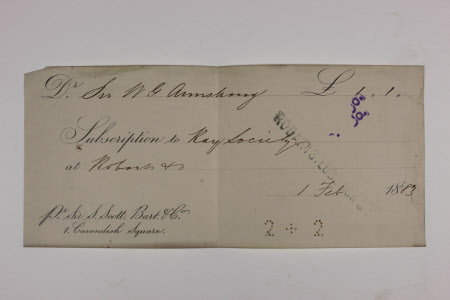 Dr. Sir W G Armstrong £ 1. 1.
Subscription to Ray Society
at Robarts &
1 Feb 1882
pr. Sir S. Scott, Bart. & Co.
1, Cavendish Square.
2 + 2